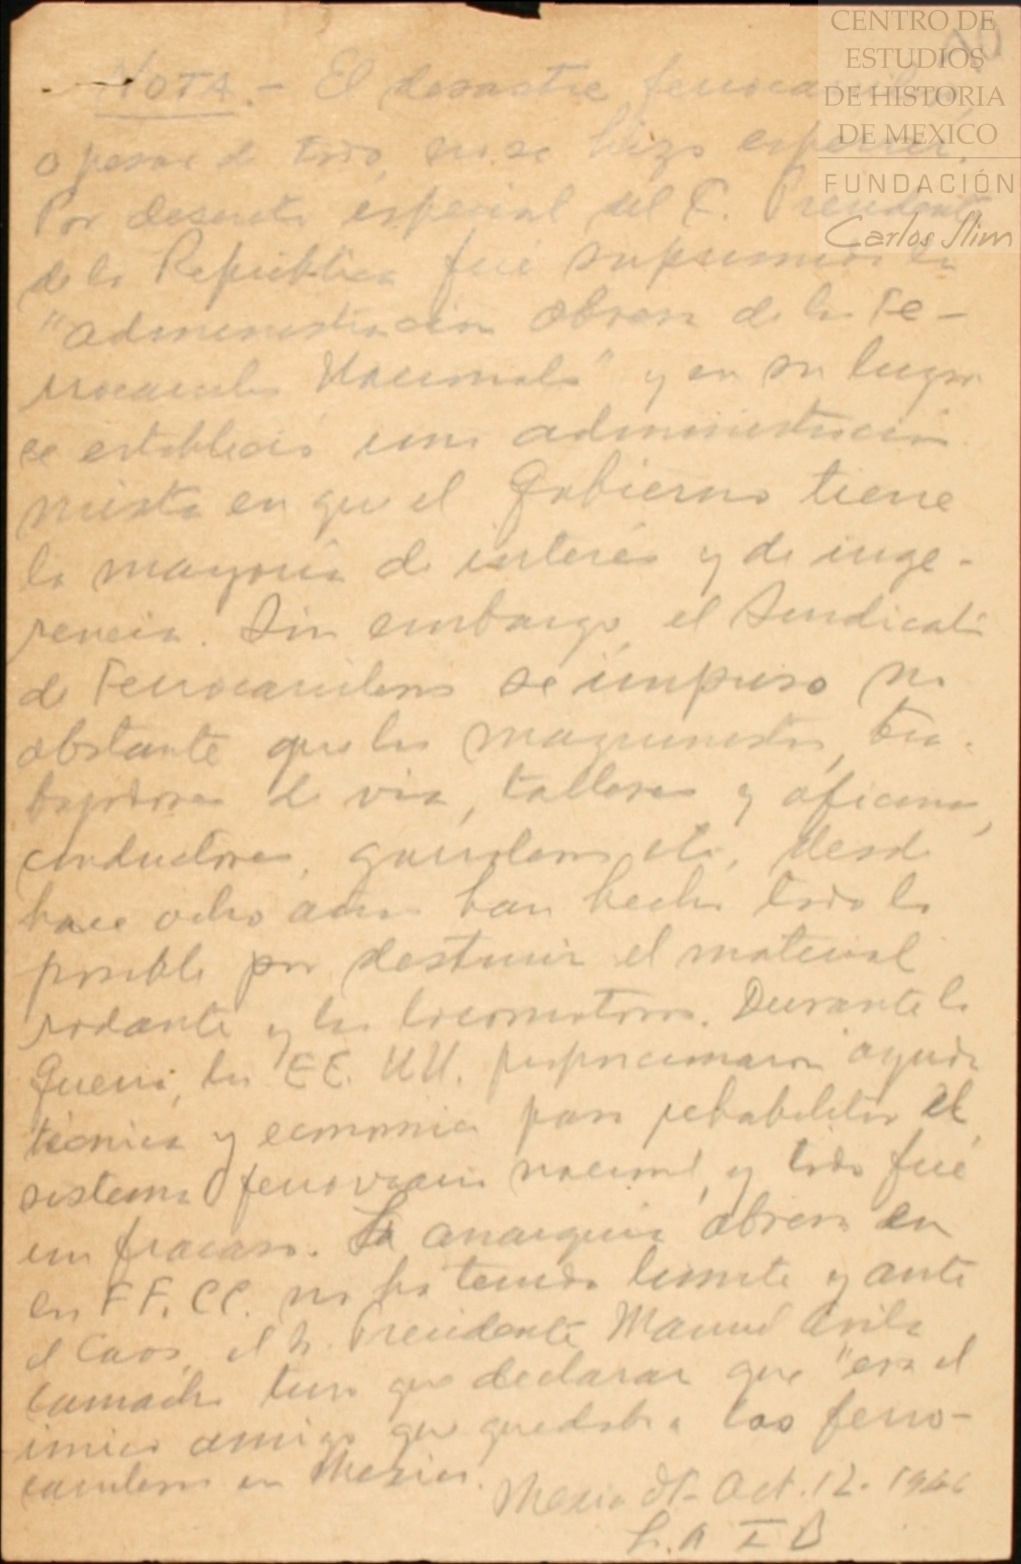 CENTRO DE
ESTUDIOS
DE HISTORIA
DE MEXICO
FUNDACIÓN
Carlos Slim
NOTA.- El desastre ferrocarrilero,
a pesar de todo, no se hizo esperar.
Por decreto especial del C. Presidente
de la República fué suprimida la
"administración obrera de los Fe-
rrocarriles Nacionales" y en su lugar
se estableció una administración
mixta en que el Gobierno tiene
la mayoría de interés y de inge-
rencia. Sin embargo, el Sindicato
de Ferrocarrileros se impuso no
obstante que los maquinistas, tra-
bajadores de vía, talleres y oficinas,
conductores, garroteros, etc, desde
hace ocho años han hecho todo lo
posible por destruir el material
rodante y las locomotoras. Durante la
Guerra, los EE. UU. proporcionaron ayuda
técnica y economica para rehabilitar el
sistema ferroviario nacional, y todo fué
un fracaso. La anarquía obrera en
en FF. CC. no ha tenido limite y ante
el Caos, el Presidente Manuel Avila
Camacho tuvo que declarar que "era el
único amigo que quedaba a los ferro-
carrileros en Mexico.
Mexico Df- Oct. 12. 1946